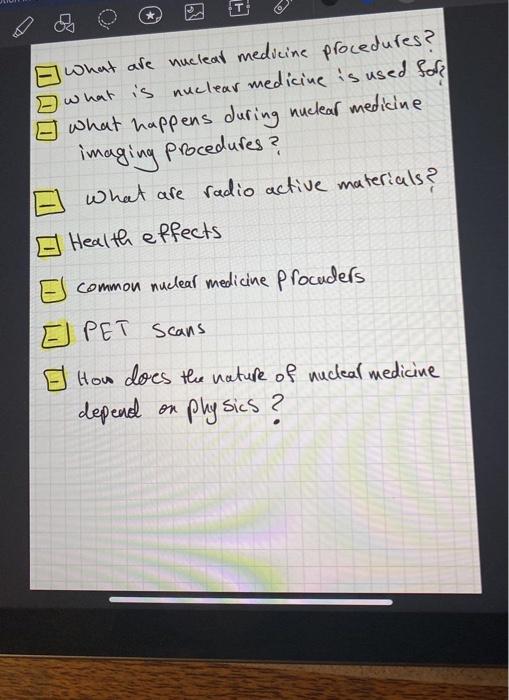 What are nuclear medicine procedures?
what is nuclear medicine is used for?
what happens during nuclear medicine
imaging procedures?
what are radio active materials?
Health effects
common nuclear medicine procuders
PET scans
How does the nature of nuclear medicine
depend on physics?